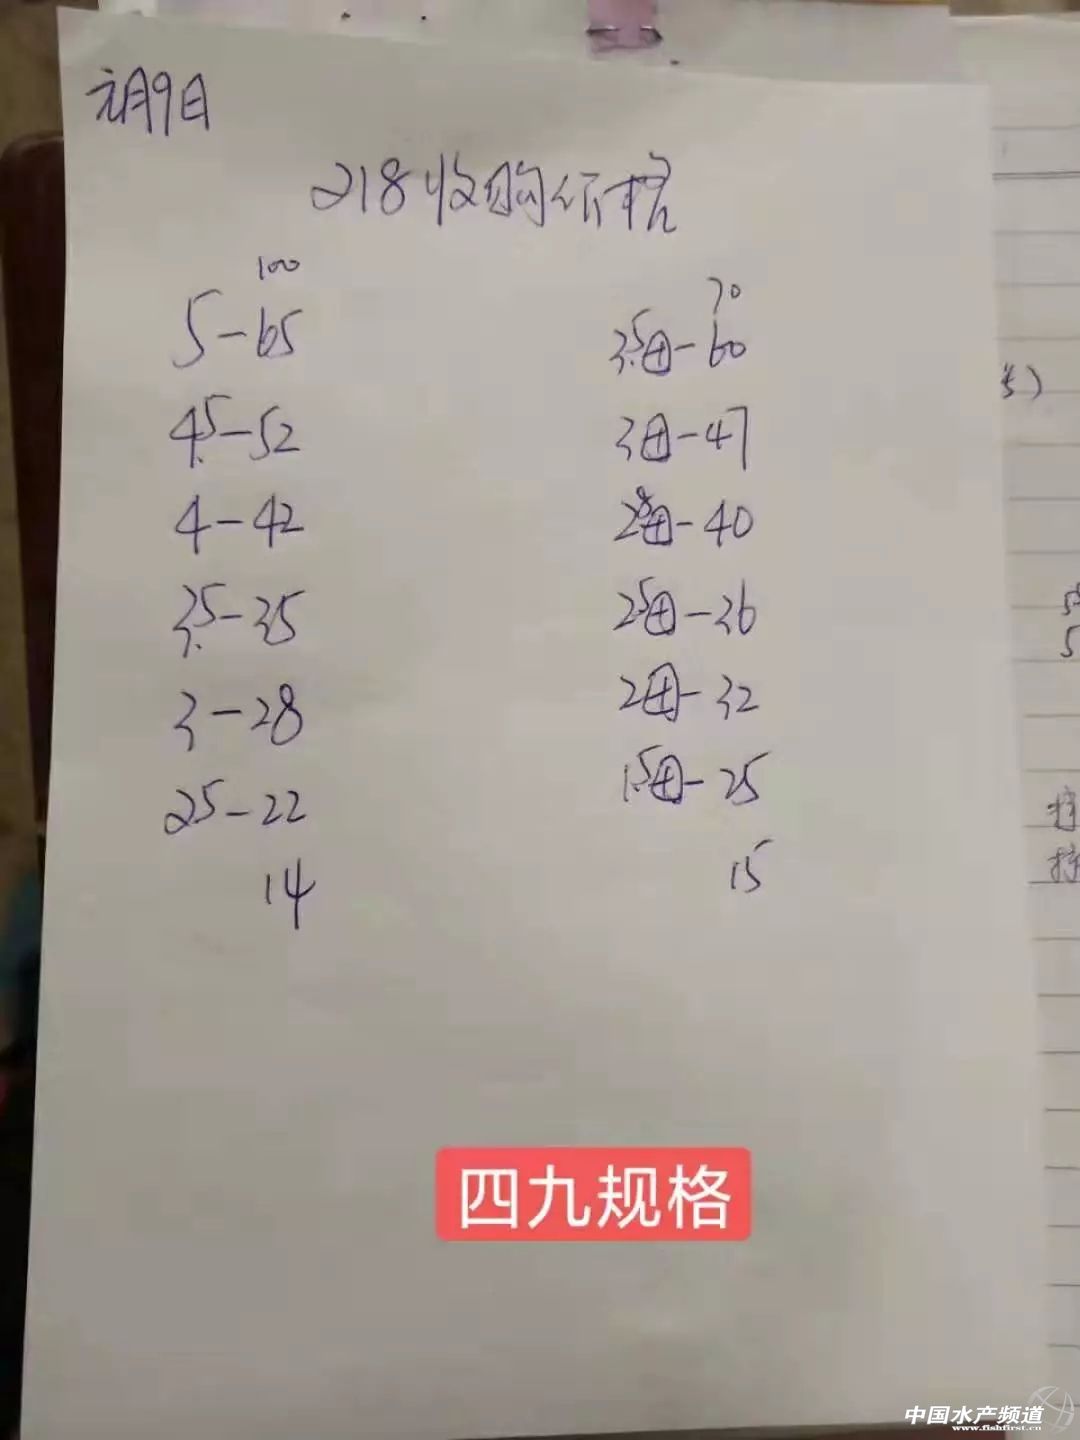 元月9日
218收购价格
100
5-65
4.5-52
4-42
3.5-35
3-28
25-22
14
70
3.5母-60
3母-47
28母-40
25母-36
2母-32
1.5母-25
15
四九规格
中国水产频道
www.fishfirst.cn